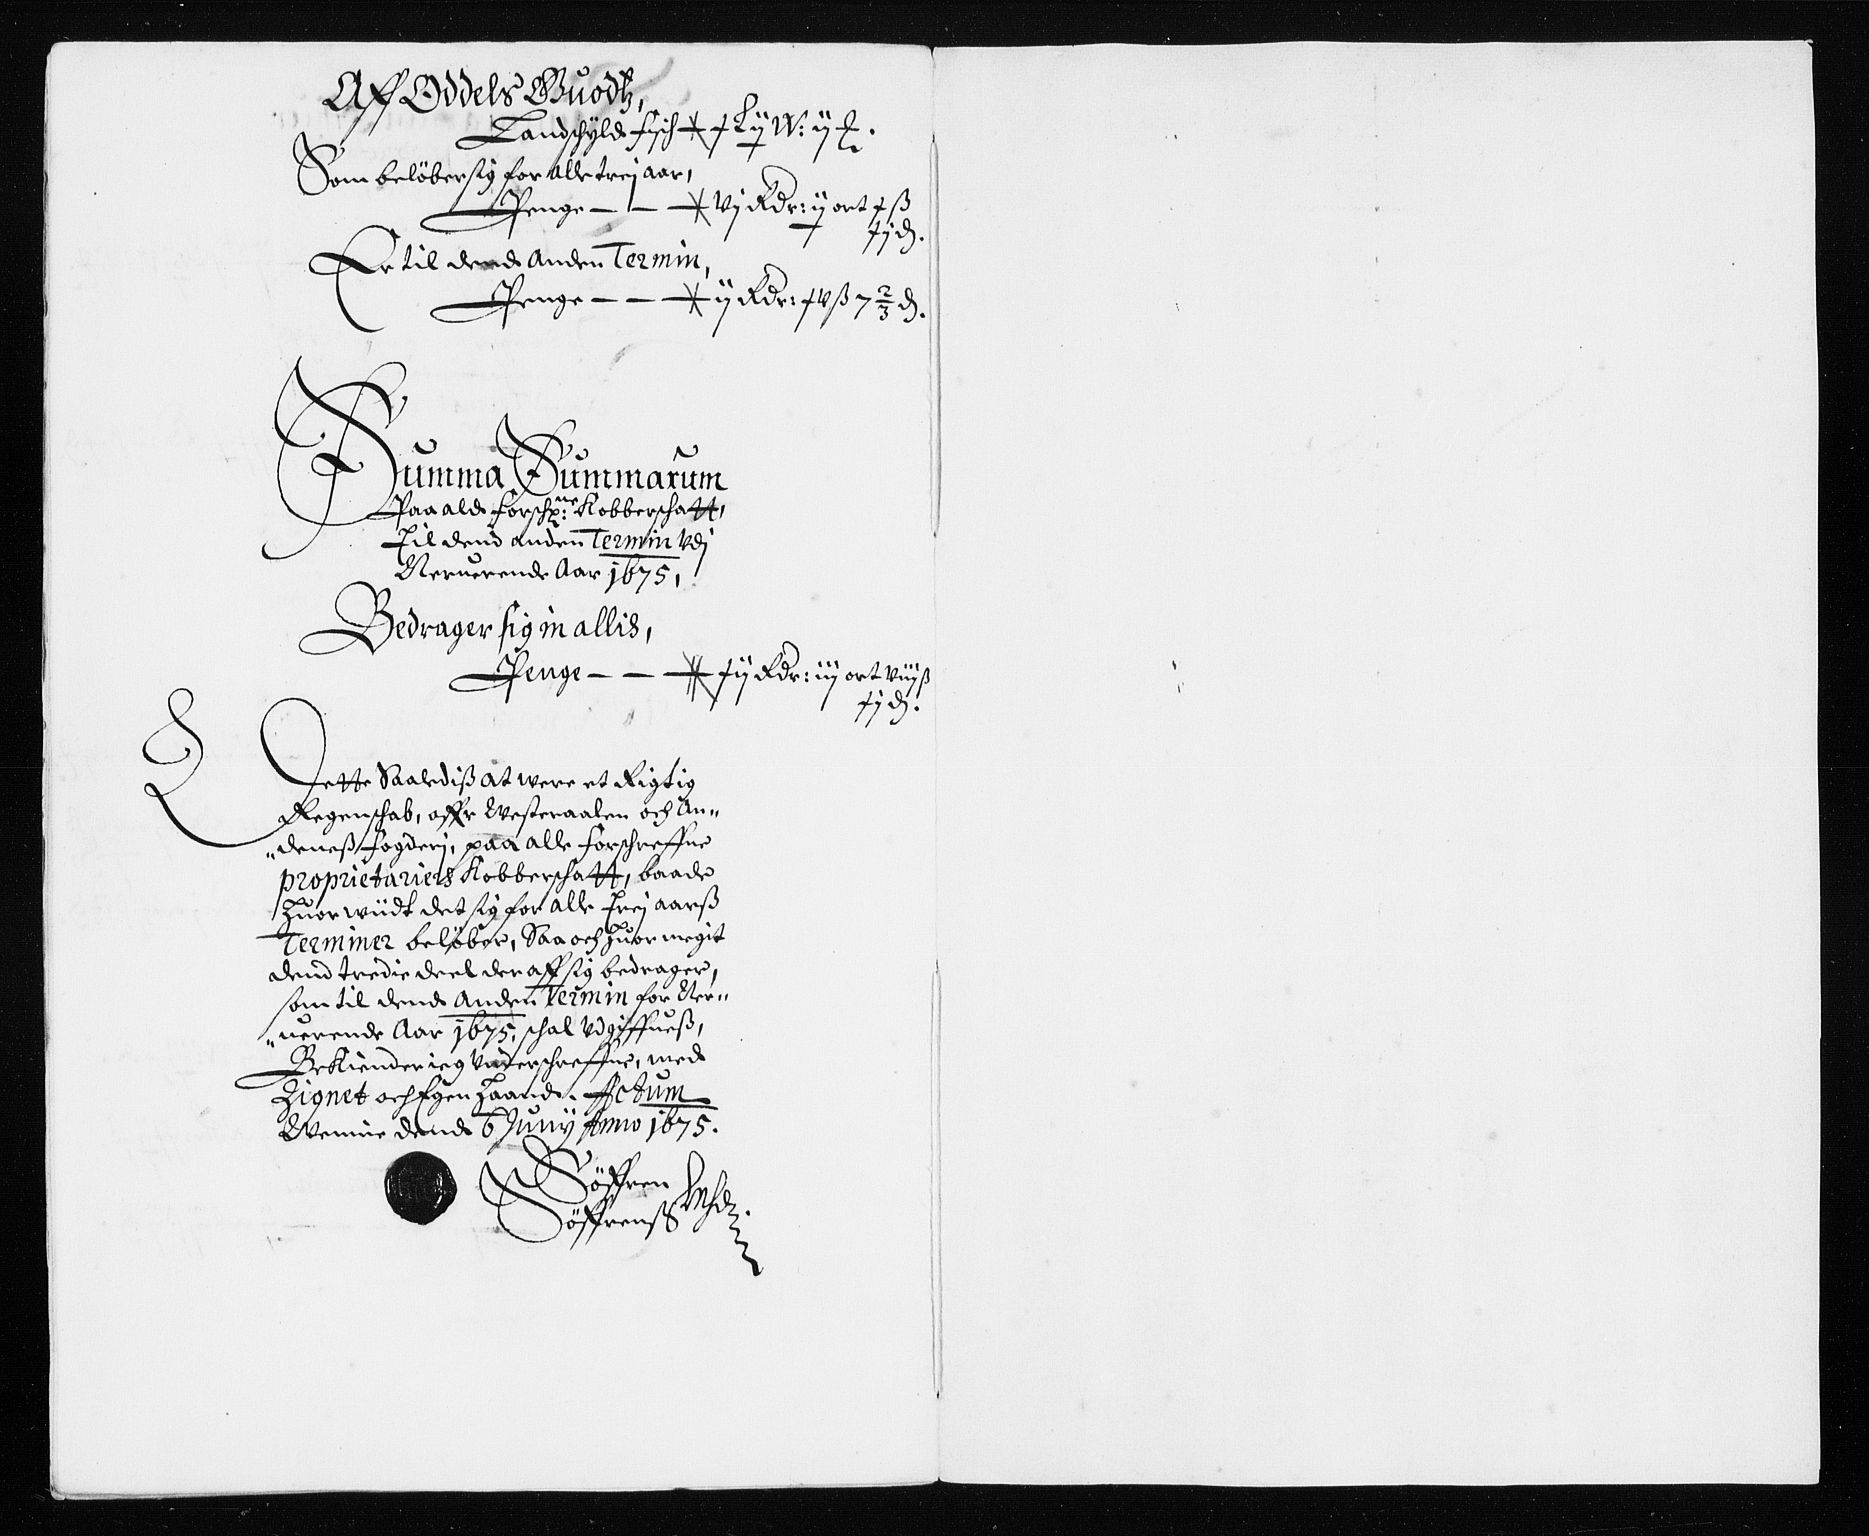 Aff Oddels Guodtz,
Landschyld fisch
Som beløber sig for alle trej aar,
Penge — — vj Rdr: ij ort j ß
Er til dend anden Termin,
Penge — — ij Rdr: 7 2/3 d.
Summa Summarum
Paa ald forschr:ne Kobberschatt,
Til dend anden Termin udj
Neruerende Aar 1675,
Bedrager sig in allis,
Penge — — Rdr: iij ort viij ß
Dette Saaledis at were et Rigtig
Regenschab, offr Westeraalen och An„
„deneß fogderj, paa alle forschreffne
proprietariers Kobberschatt, baade
huor wiidt det sig for alle trej aarß
Terminer beløber, Saa och huor megit
dend tredie deel der aff sig bedrager,
som til dend anden Termin for Ner„
„uerende Aar 1675, schal udgiffueß,
Bekiender ieg underschreffne, med
Zignet och Egen haand. Actum
dend 6 Juny Anno 1675.
Søffren
Søffrenß